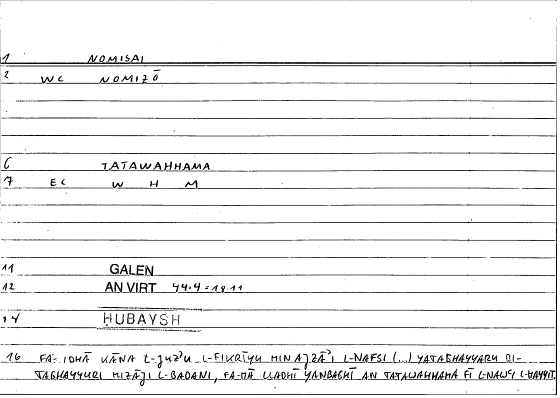 1 NOMISAI
2 WC NOMIZŌ
6 TATAWAHHAMA
7 EC W H M
11 GALEN
12 AN VIRT 44.4 = 19.11
14 ḤUBAYSH
16 FA-IDHĀ KĀNA L-JUZʾU L-FIKRĪYU MIN AJZĀʾI L-NAFSI (...) YATAGHAYYARU BI-
TAGHAYYURI MIZĀJI L-BADANI, FA-MĀ LLADHĪ YANBAGHĪ AN TATAWAHHAMA FĪ L-NAWʿI L-MAYYIT